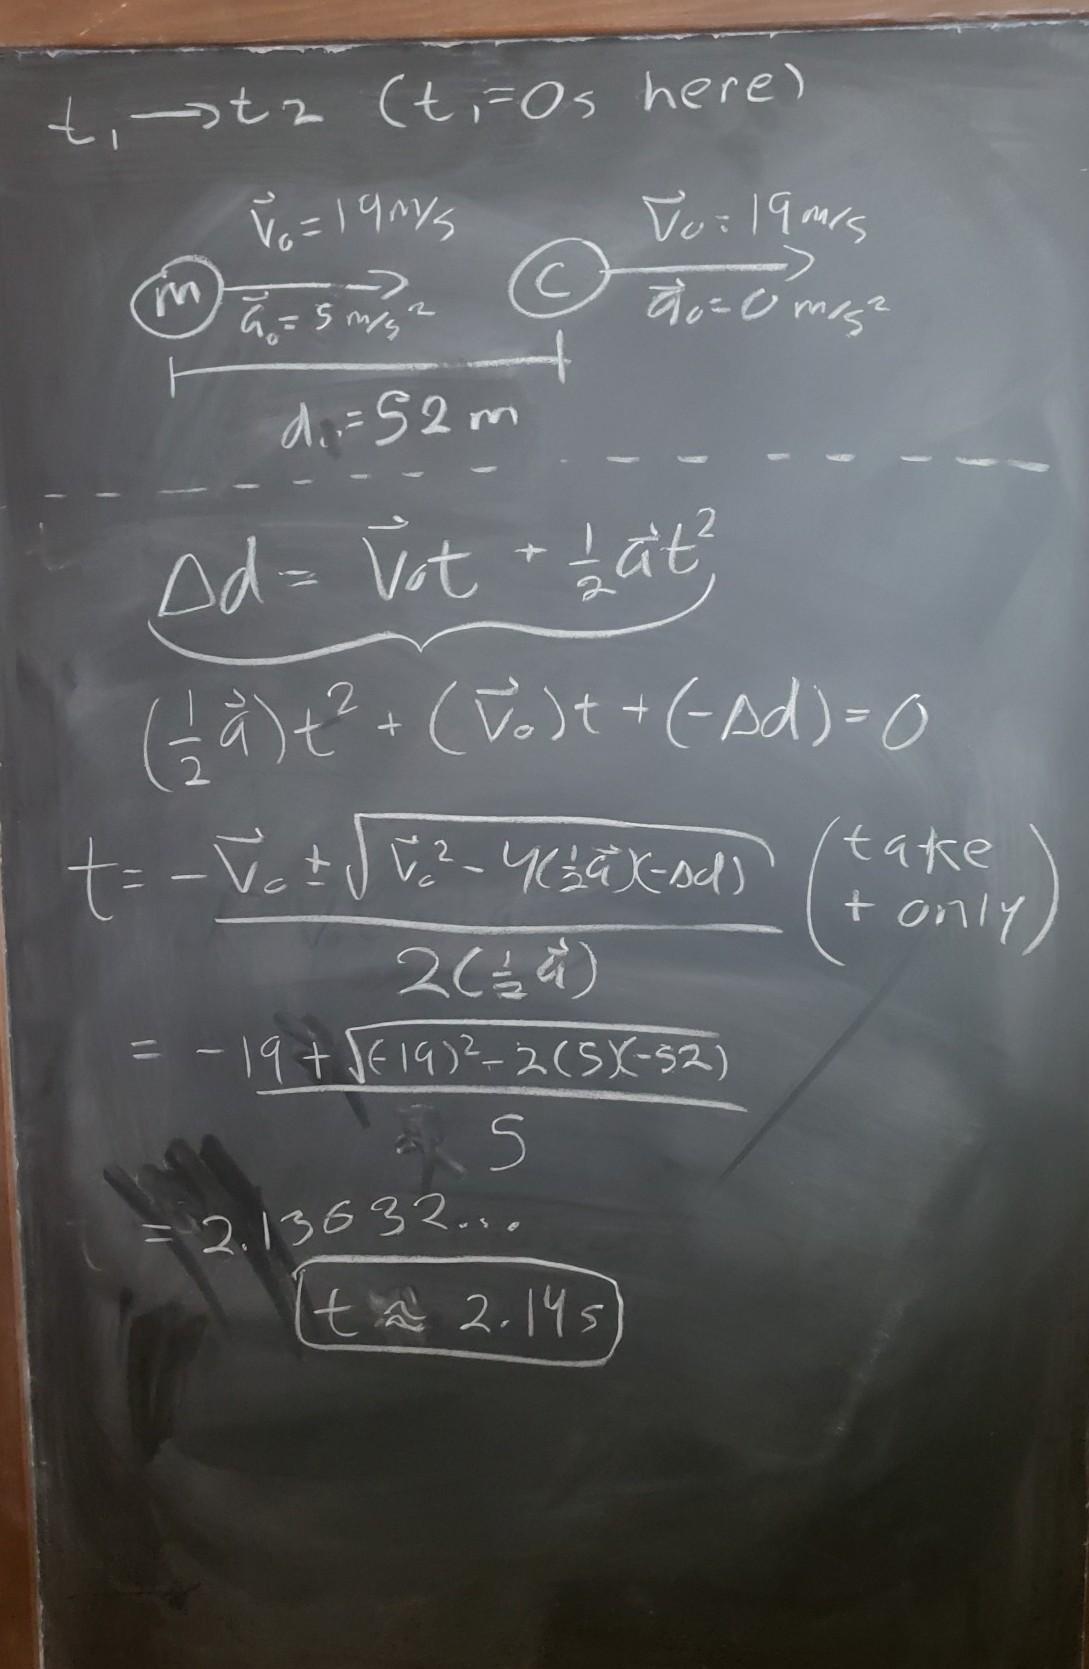 t₁ → t₂ (t₁=0s here)
v⃗₀=19m/s v⃗₀=19m/s
m C
a⃗₀=5m/s² a⃗₀=0m/s²
d₁=52m
Δd = v⃗₀t + ½a⃗t²
(½a⃗)t² + (v⃗₀)t + (-Δd) = 0
t = -v⃗₀ ± √(v⃗₀² - 4(½a⃗)(-Δd)) / 2(½a⃗) (take + only)
= -19 + √((-19)² - 2(5)(-52)) / 5
= 2.13632...
t ≈ 2.14s